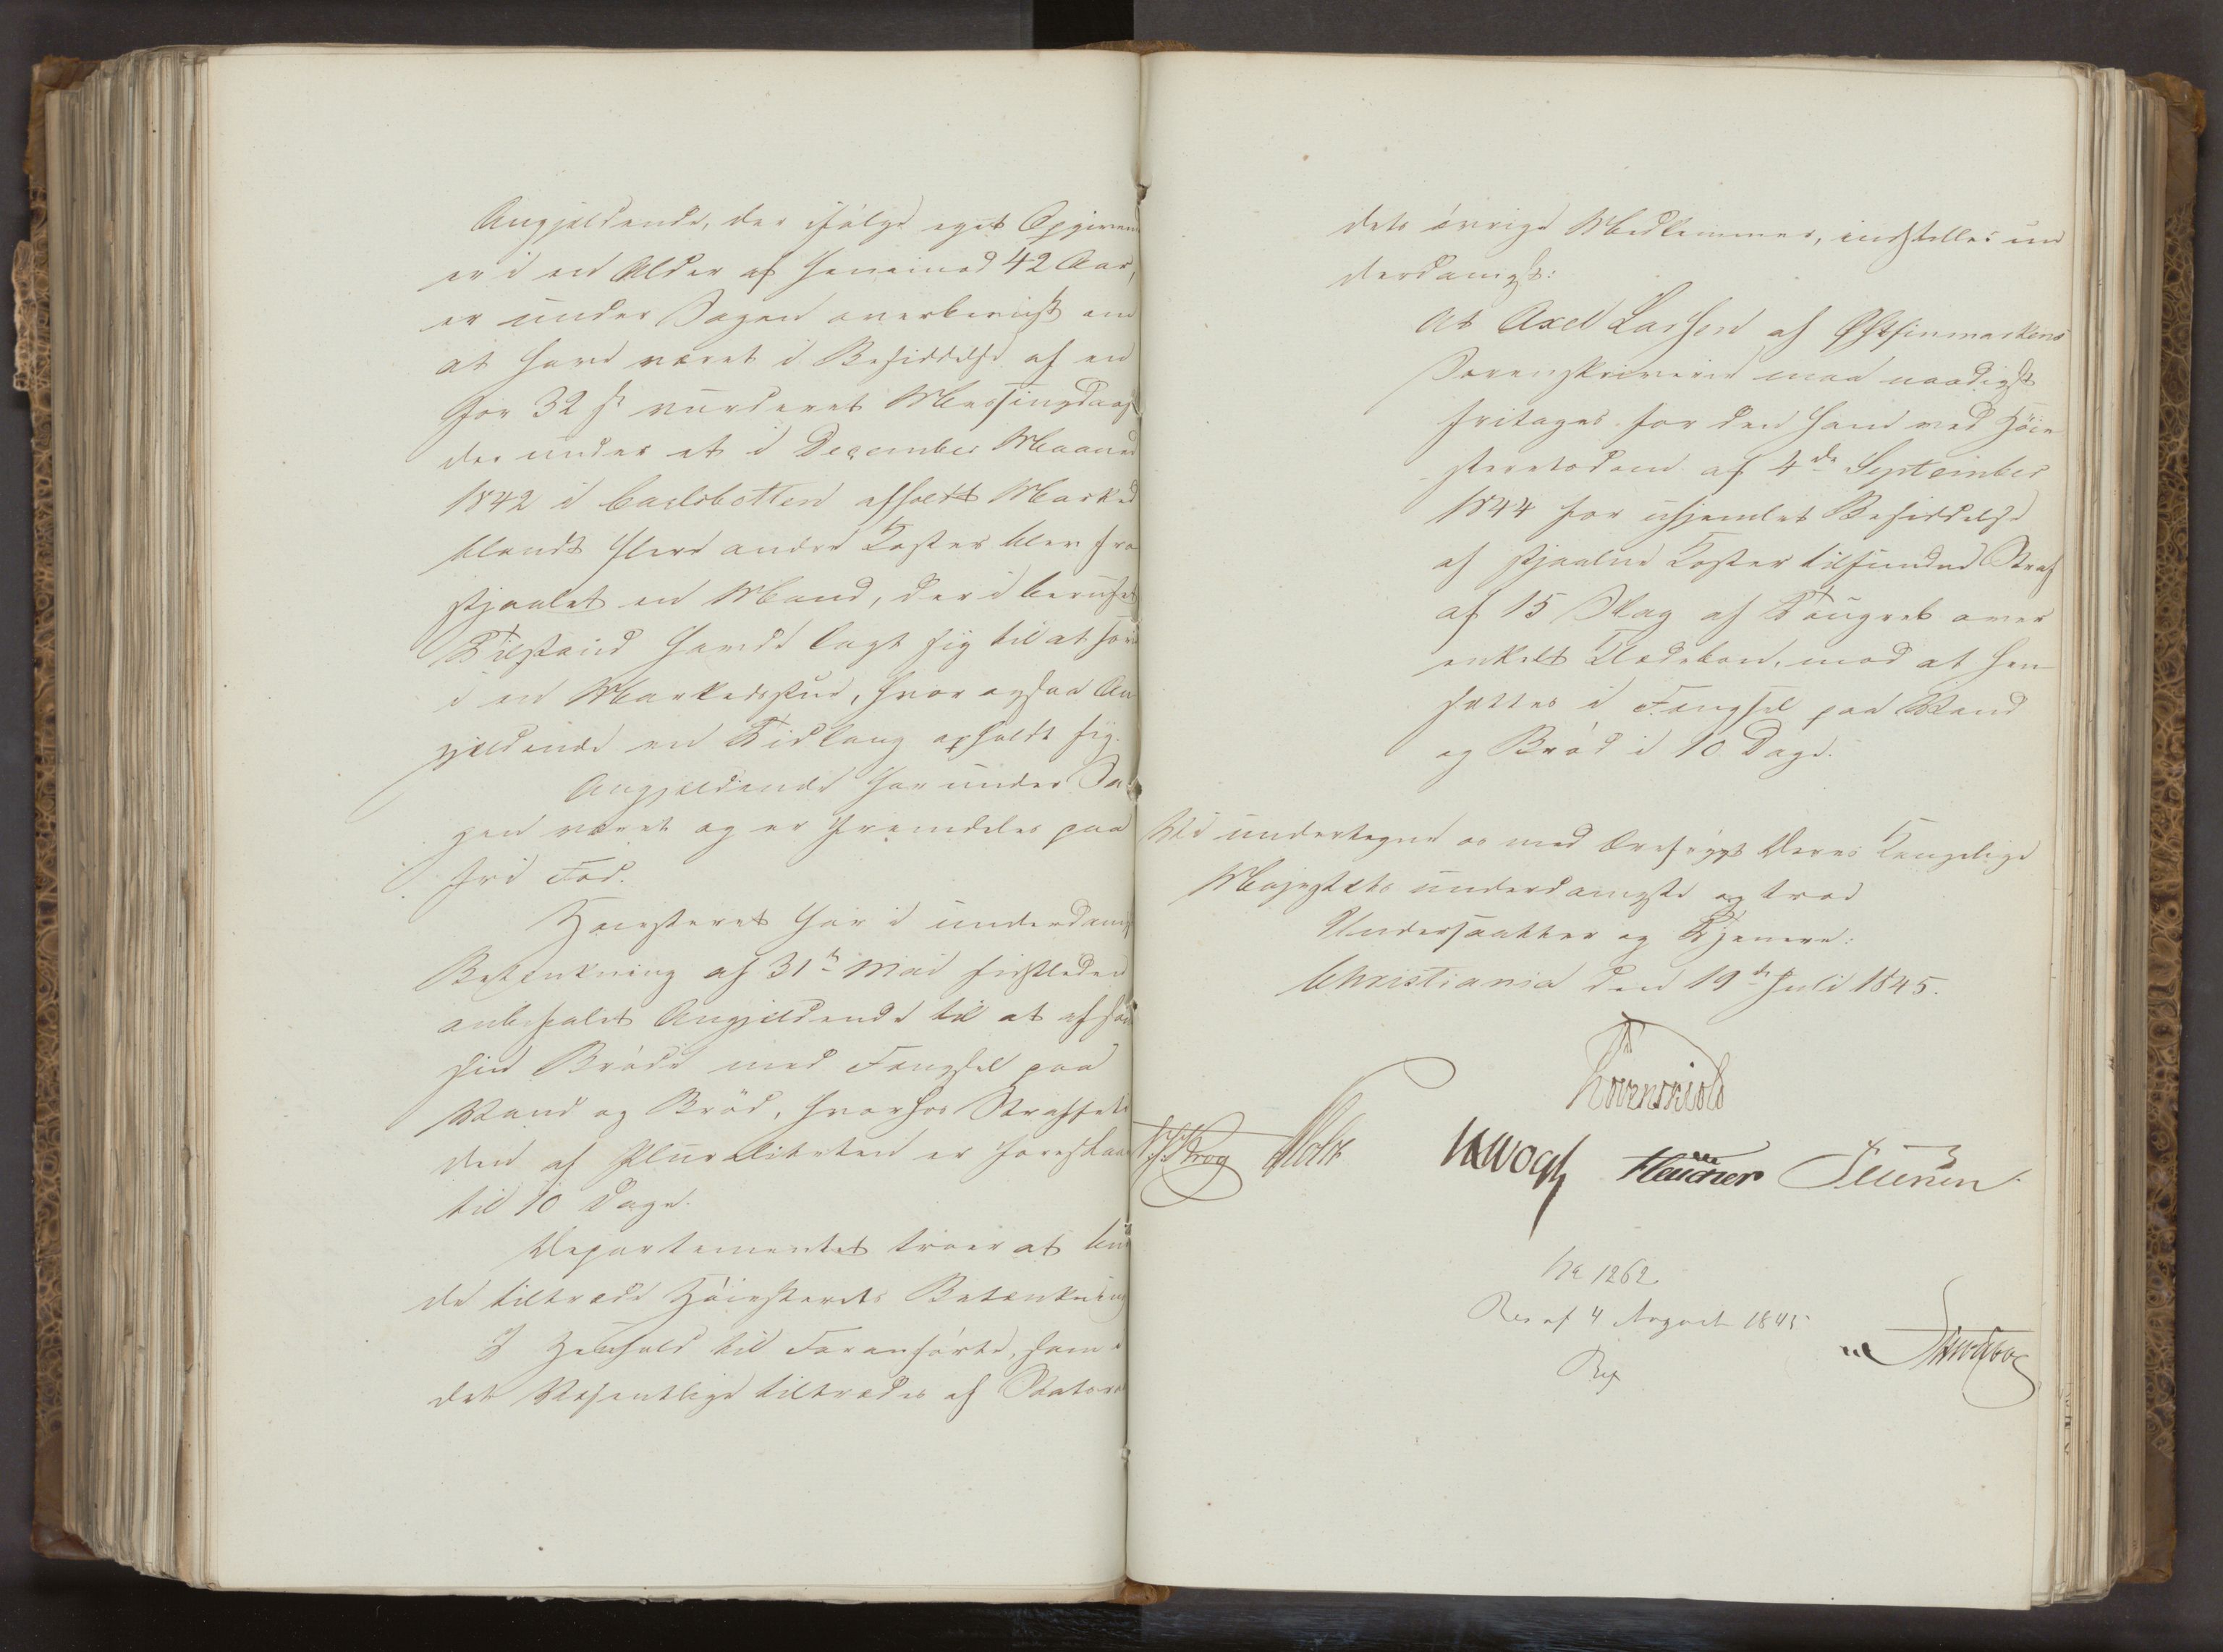 Angjeldende, der ifølge eget Opgivende
er i en Alder af henimod 42 Aar,
er under Sagen overbeviist om
at have været i Besiddelse af en
for 32 s. vurderet Messingdaase
der under et i December Maaned
1842 i Carlsbotten afholdt Marked
blandt flere andre Koster blev fra
stjaalet en Mand, der i beruset
Tilstand havde lagt sig til at sove
i en Markedsstue, hvor ogsaa An
gjeldende en Tidlang opholdt sig.
Angjeldende har under Sa
gen været og er fremdeles paa
fri Fod.
Høiesteret har i underdanig
Betænkning af 31te Mai sidstleden
anbefalet Angjeldende til at afsone
sin Brøde med Fængsel paa
Vand og Brød, hvorhos Straffeti
den af Pluraliteten er foreslaaet
til 10 Dage.
Departementet troer at bur
de tiltræde Høiesterets Betænkning
I Henhold til Foranførte, som i
det Væsentlige tiltrædes af Statsraa
dets øvrige Medlemmer, indstilles un
derdanigst:
At Axel Larsen af Østfinmarkens
Sorenskriverie maa naadigst
fritages for den ham ved Høie
steretsdom af 4de September
1844 for uhjemlet Besiddelse
af stjaalne Koster tilfundne Straf
af 15 Slag af Tougreb over
enkelt Klædebon, mod at hen
sættes i Fængsel paa Vand
og Brød i 10 Dage.
Vi undertegne os med Ærefrygt Deres Kongelige
Majestæts underdanigste og troe
Undersaatter og Tjenere:
Christiania den 19de Juli 1845.
Løvenskiold
Krog Holst Vogt
No 1262.
Res af 4 August 1845